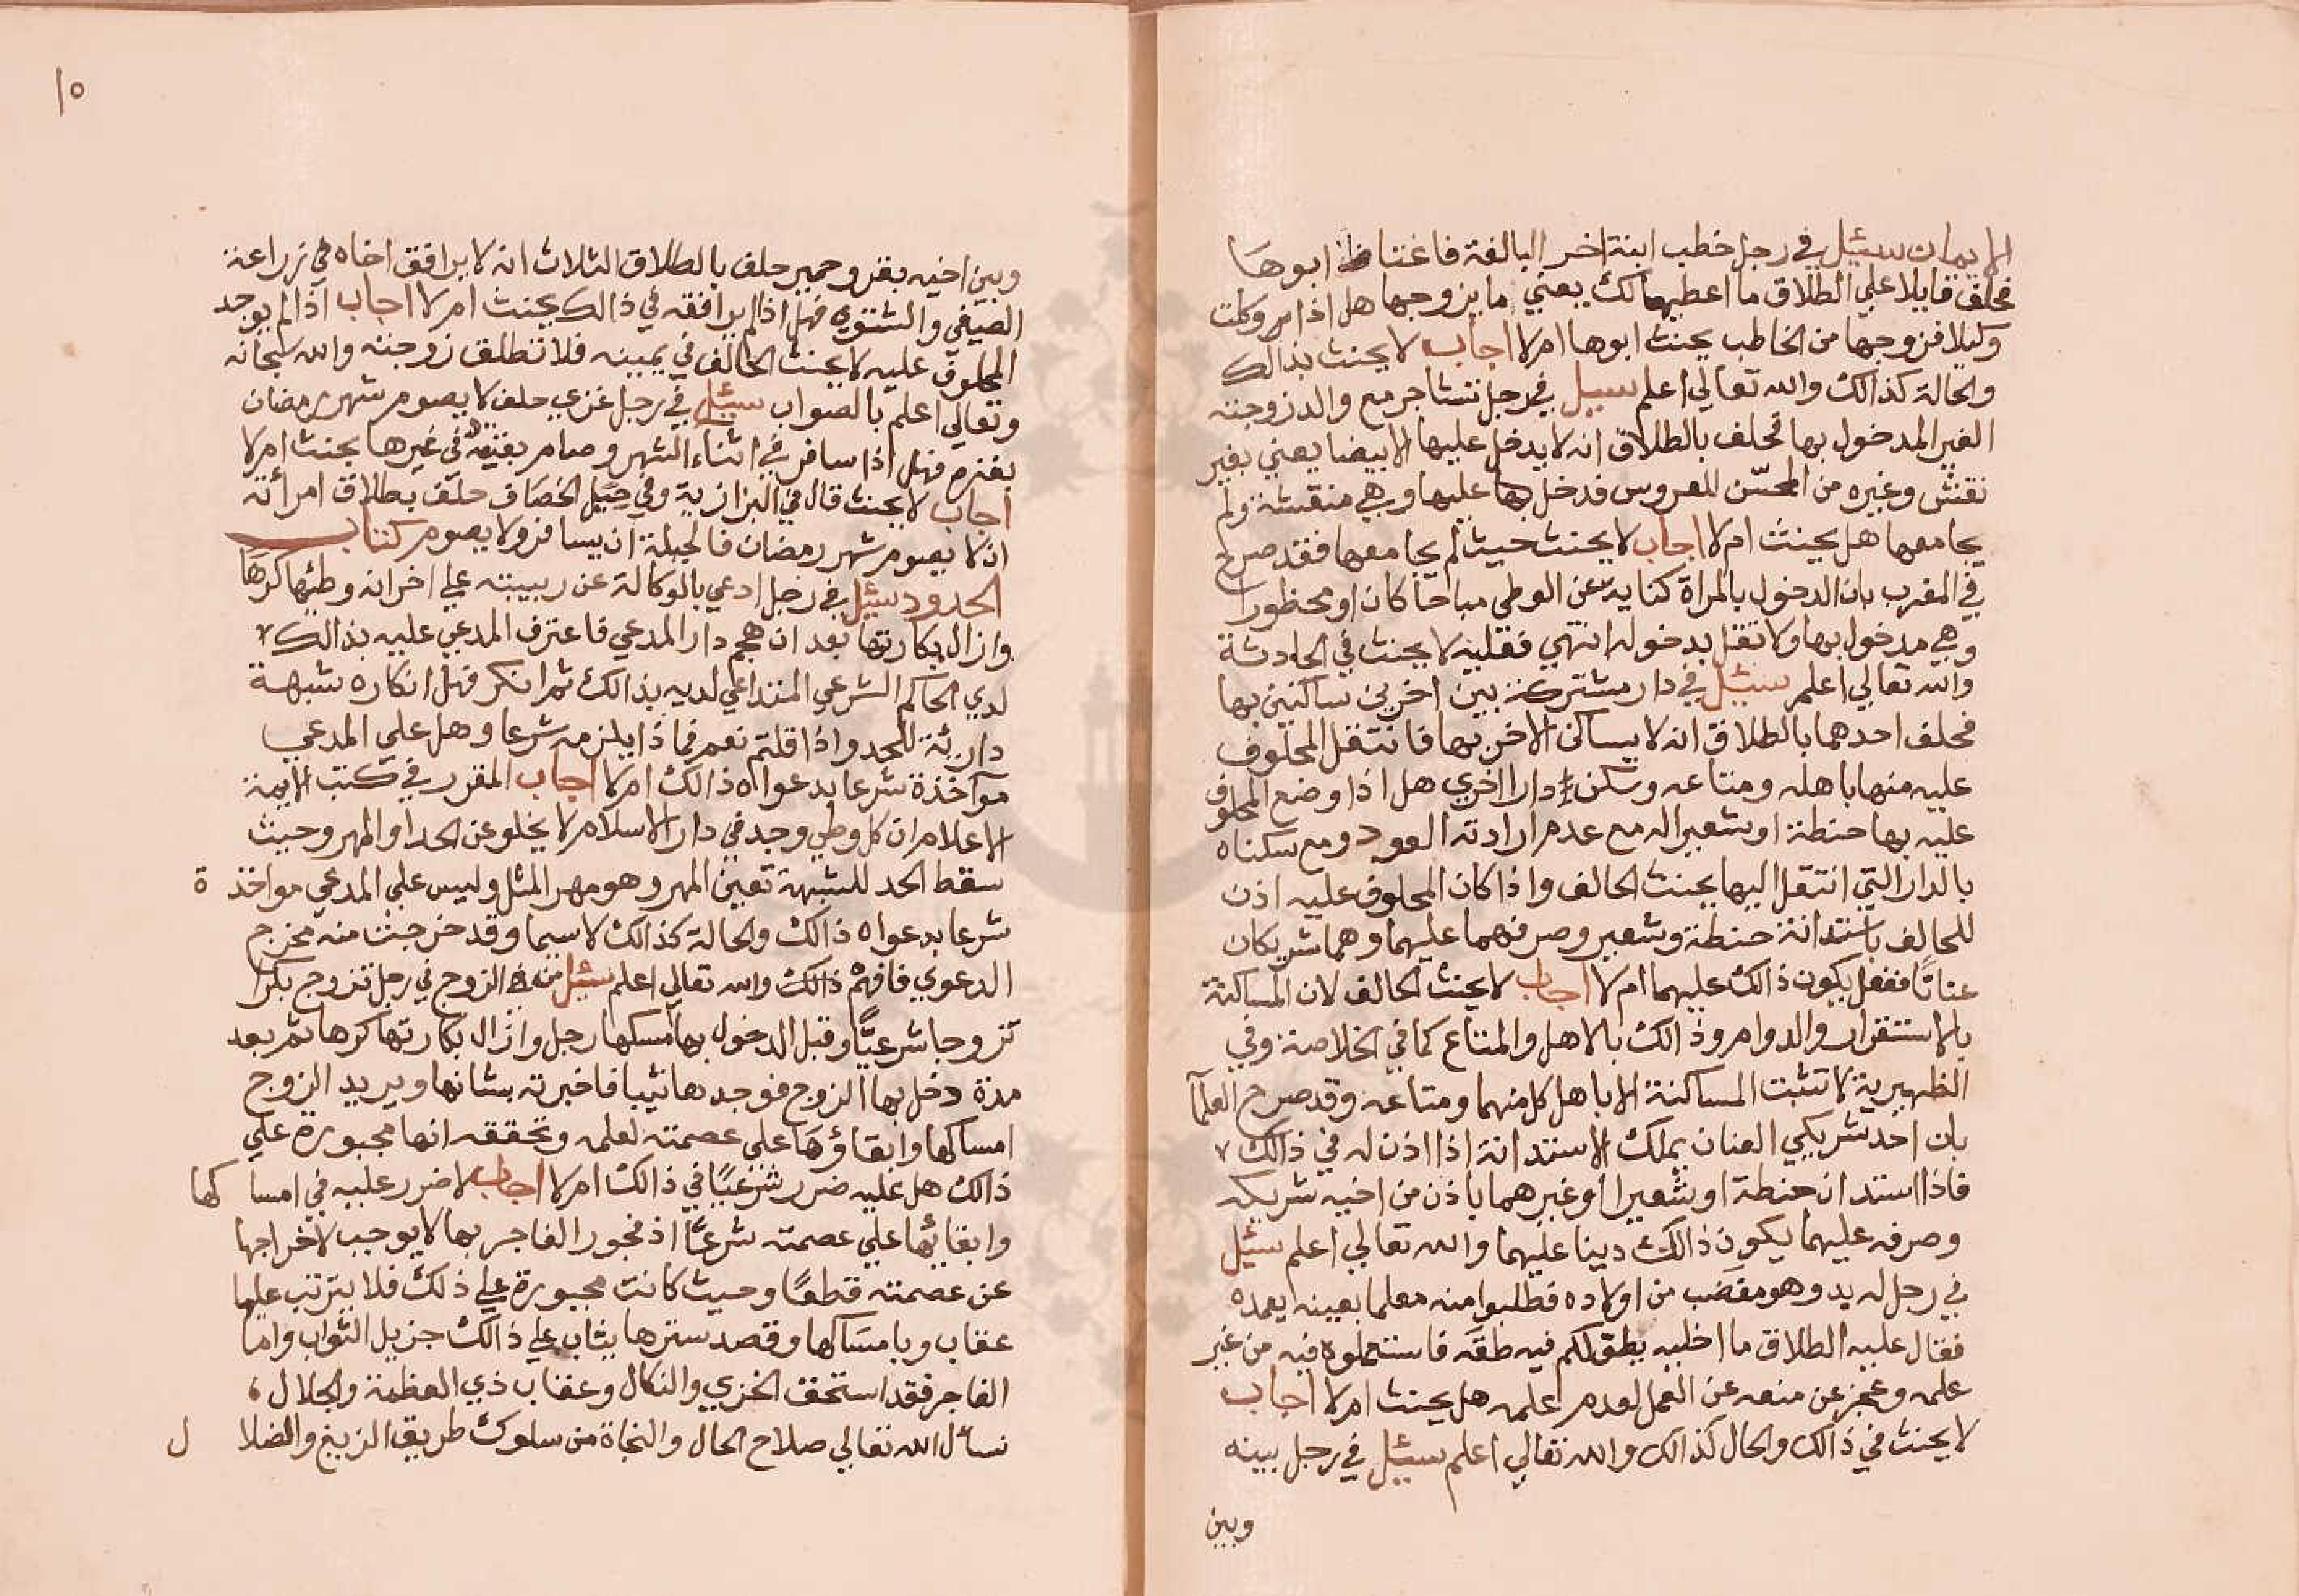 الايمان سئيل في رجل خطب ابنة اخر البالغة فاغتاظ ابوها
فحلف قايلا علي الطلاق ما اعطيها لك يعني ما يزوجها هل اذا وكلت
وكيلا فزوجها من الخاطب يحنث ابوها ام لا اجاب لا يحنث بذالك
والحالة كذالك والله تعالي اعلم سييل في رجل تشاجر مع والد زوجته
الغير المدخول بها فحلف بالطلاق انه لا يدخل عليها الا بيضا يعني بغير
نقش وغيره من المحسّن للعروس فدخل بها عليها وهي منقشة ولم
يجامعها هل يحنث ام لا اجاب لا يحنث حيث لم يجامعها فقد صرح
في المغرب بان الدخول بالمراة كناية عن الوطي مباحا كان او محظورا
وهي مدخول بها ولا تقل بدخوله انتهي فقلية لا يحنث في الحادثة
والله تعالي اعلم سئيل في دار مشتركة بين اخرين ساكنين بها
فحلف احدهما بالطلاق انه لا يساكن الاخر بها فانتقل المحلوف
عليه منها باهله ومتاعه وسكن دارا اخري هل اذا وضع المحلوف
عليه بها حنطة او شعيرا له مع عدم ارادته العود ومع سكناه
بالدار التي انتقل اليها يحنث الحالف واذا كان المحلوف عليه اذن
للحالف باستدانة حنطة وشعير وصرفهما عليهما وهما شريكان
عنانًا ففعل يكون ذالك عليهما ام لا اجاب لا يحنث الحالف لان المساكنة
بالاستقرار والدوام وذالك بالاهل والمتاع كما في الخلاصة وفي
الظهيرية لا تثبت المساكنة الا باهل كل منهما ومتاعه وقد صرح العلمآ
بان احد شريكي العنان يملك الاستدانة اذا اذن له في ذالك
فاذا استدان حنطة او شعيرا او غيرهما باذن من اخيه شريكه
وصرفه عليهما يكون ذالك دينا عليهما والله تعالي اعلم سئيل
في رجل له يد وهو مغضب من اولاده فطلبوا منه معلما بعينه يعمده
فقال عليه الطلاق ما اخليه يطق لكم فيه طقه فاستعملوه فيه من غير
علمه وعجز عن منعه عن العمل لعدم علمه هل يحنث ام لا اجاب
لا يحنث في ذالك والحال كذالك والله تعالي اعلم سئيل في رجل بينه
وبين
١٥
وبين اخيه بقر وحمير حلف بالطلاق الثلاث انه لا يرافق اخاه في زراعته
الصيفي والشتوي فهل اذا لم يرافقه في ذالك يحنث ام لا اجاب اذا لم يوجد
المحلوف عليه لا يحنث الحالف في يمينه فلا تطلق زوجته والله سبحانه
وتعالي اعلم بالصواب سئيل في رجل غزي حلف لا يصوم شهر رمضان
بغزه فهل اذا سافر في اثناء الشهر وصام بقيته في غيرها يحنث ام لا
اجاب لا يحنث قال في البزازية وفي حيل الخصاف حلف بطلاق امرأته
ان لا يصوم شهر رمضان فالحيلة ان يسافر ولا يصوم كتاب
الحدود سئيل في رجل ادعي بالوكالة عن ربيبته علي اخر انه وطئها كرها
وازال بكارتها بعد ان هجم دار المدعي فاعترف المدعي عليه بذالك
لدي الحاكم الشرعي المتداعي لديه بذالك ثم انكر فهل انكاره شبهة
دارئة للحد واذا قلتم نعم فماذا يلزمه شرعا وهل علي المدعي
مواخذة شرعا بدعواه ذالك ام لا اجاب المقرر في كتب الايمة
الاعلام ان كل وطي وجد في دار الاسلام لا يخلو عن الحد او المهر وحيث
سقط الحد للشبهة تعين المهر وهو مهر المثل وليس علي المدعي مواخذ ة
شرعا بدعواه ذالك والحالة كذالك لا سيما وقد خرجت منه مخرج
الدعوي فافهم ذالك والله تعالي اعلم سئيل من الزوج في رجل تزوج بكرا
تزوجا شرعيًّا وقبل الدخول بها مسكها رجل وازال بكارتها كرها ثم بعد
مدة دخل بها الزوج فوجدها ثيبا فاخبرته بشانها ويريد الزوج
امساكها وابقاؤها علي عصمته لعلمه وتحققه انها مجبورة علي
ذالك هل عليه ضرر شرعيًا في ذالك ام لا اجاب لا ضرر عليه في امسا كها
وابقائها علي عصمته شرعًا اذ فجور الفاجر بها لا يوجب لاخراجها
عن عصمته قطعًا وحيث كانت مجبورة علي ذلك فلا يترتب عليها
عقاب وبامساكها وقصد سترها يثاب علي ذالك جزيل الثواب واما
الفاجر فقد استحق الخزي والنكال وعقاب ذي العظمة والجلال
نسأل الله تعالي صلاح الحال والنجاة من سلوك طريق الزيغ والضلا ل